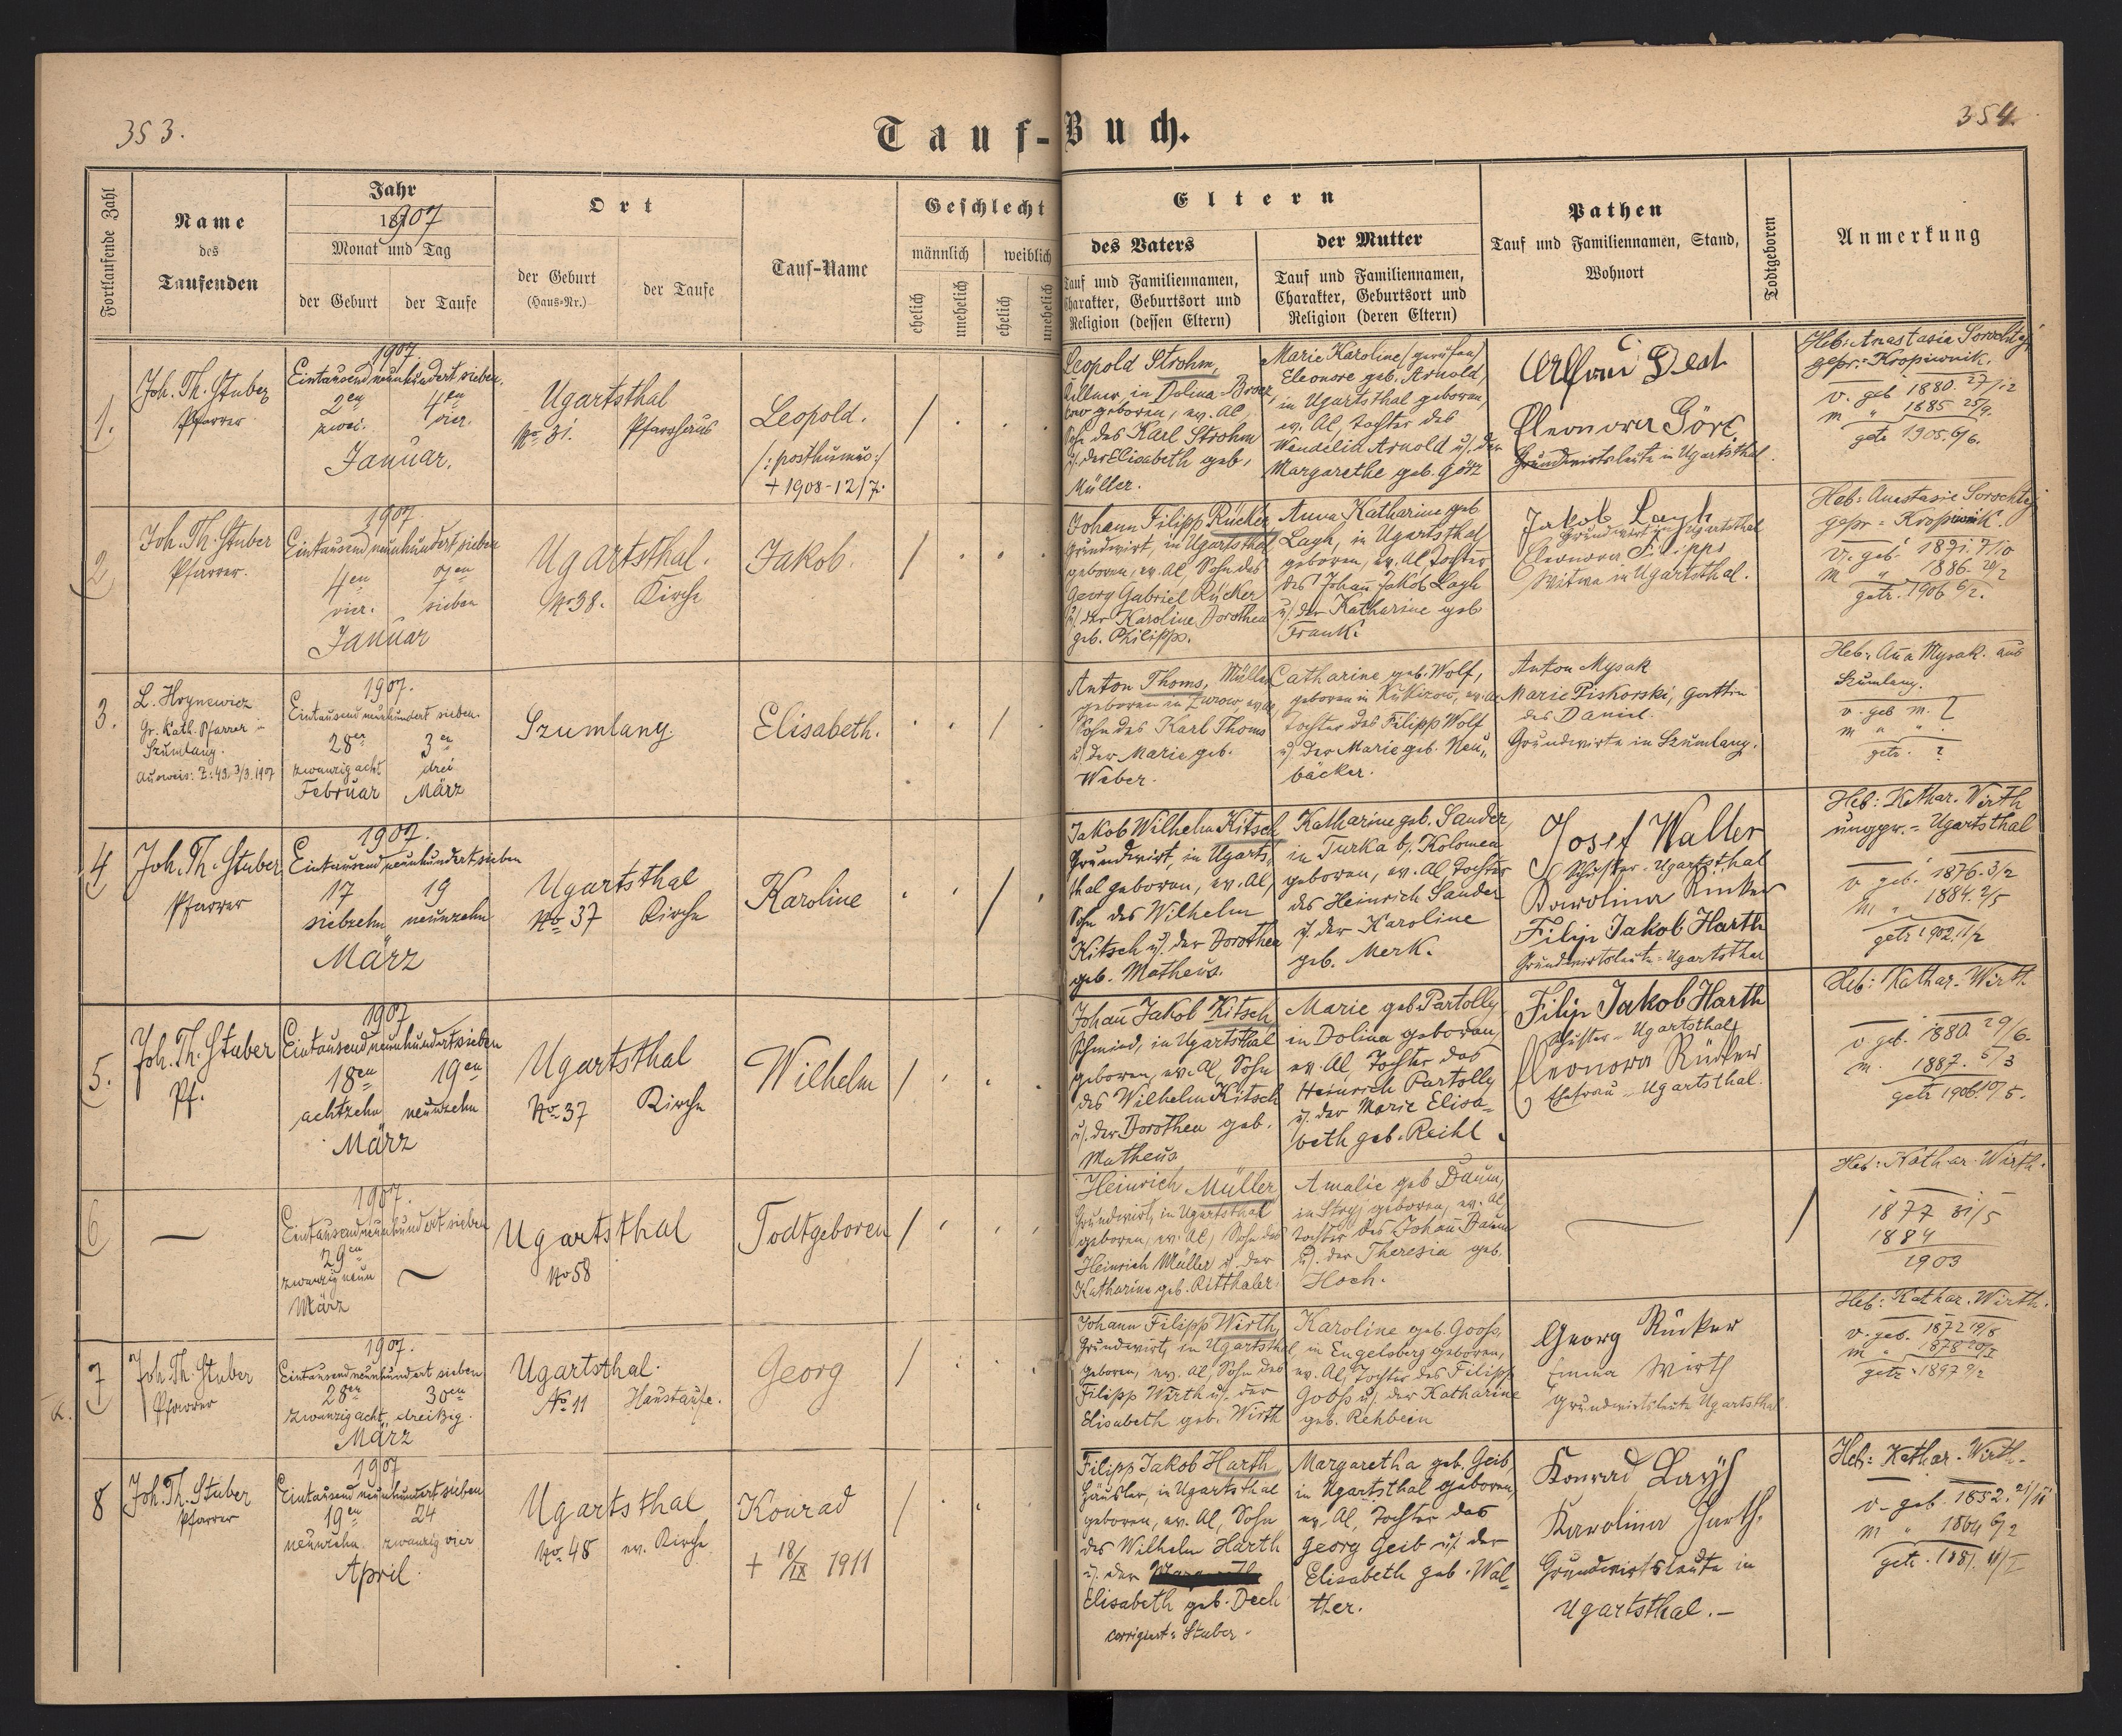 353.
354.
Tauf-Buch.
Fortlaufende Zahl
Name
des
Taufenden
Jahr
1907
Monat und Tag
der Geburt
der Taufe
Ort
der Geburt
(Haus-Nr.)
der Taufe
Tauf-Name
Geschlecht
männlich
weiblich
ehelich
unehelich
ehelich
unehelich
Eltern
des Vaters
Tauf und Familiennamen,
Charakter, Geburtsort und
Religion (dessen Eltern)
der Mutter
Tauf und Familiennamen,
Charakter, Geburtsort und
Religion (deren Eltern)
Pathen
Tauf und Familiennamen, Stand,
Wohnort
Todtgeboren
Anmerkung
1.
Joh. Th. Stuber
Pfarrer
1907
Eintausend neunhundert sieben.
2en 4en
zwei. vier.
Januar.
Ugartsthal
No 31. Pfarrhaus
Leopold.
/: posthumus :/
+ 1908-12/7.
/
Leopold Strohm,
in Dolina
geboren, ev. Al,
Sohn des Karl Strohm
u/. der Elisabeth geb.
Müller.
Marie Karoline /gerufen/
Eleonore geb. Arnold,
in Ugartsthal geboren,
ev. Al, Tochter des
Wendelin Arnold u/. der
Margarethe geb. Götz
Eleonora
Grundwirtsleute in Ugartsthal.
Heb: Anastasia
gepr. = Kropiwnik.
v. geb 1880. 27/12
m. " 1885 25/9.
getr 1905. 6/6.
2
Joh. Th. Stuber
Pfarrer.
1907.
Eintausend neunhundert sieben
4en 7en
vier. sieben
Januar
Ugartsthal.
No 38. Kirche
Jakob.
/
Johann Filipp Rücker,
Grundwirt, in Ugartsthal
geboren, ev. Al, Sohn des
Georg Gabriel Rücker
u/. der Karoline Dorothea
geb. Philipps.
Anna Katharine geb
Lagh, in Ugartsthal
geboren, ev. Al, Tochter
des Johañ Jakob Lagh
u/. der Katharine geb
Frank.
Jakob Lagh
Grundwirt in Ugartsthal
Eleonora
Witwe in Ugartsthal.
Heb: Anastasie
gepr = Kropiwnik.
v. geb. 1871. 7/10
m " 1886. 20/2
getr. 1906 6/2.
3.
L. Hrynewicz
Gr. Kath. Pfarrer in
Szumlany.
Ausweis: Z: 49. 3/3. 1907
1907.
Eintausend neunhundert sieben.
28en 3en
zwanzig acht drei
Februar März
Szumlany.
Elisabeth.
/
Anton Thoms, Müller
geboren in Zurow, ev. Al,
Sohn des Karl Thoms
u/. der Marie geb.
Weber.
Catharine geb. Wolf,
geboren in Kukizow, ev. Al
Tochter des Filipp Wolf
u/. der Marie geb. Neu„
bäcker.
Anton Mysak
Marie Piskorski, Gattin
des Daniel.
Grundwirte in Szumlany.
Heb: Aña Mysak. aus
Szumlany.
v. geb
m " "
getr. ?
4
Joh. Th. Stuber
Pfarrer
1907.
Eintausend neunhundert sieben
17 19
siebzehn neunzehn
März
Ugartsthal
No 37 Kirche
Karoline
/
Jakob Wilhelm Kitsch
Grundwirt, in Ugarts„
thal geboren, ev. Al,
Sohn des Wilhelm
Kitsch u/. der Dorothea
geb. Matheus.
Katharine geb. Sander,
in Turka b/. Kolomea
geboren, ev. Al, Tochter
des Heinrich Sander
u/. der Karoline
geb. Merk.
Josef Walter
Schuster - Ugartsthal
Karolina Rücker
Filip Jakob Harth
Grundwirtsleute - Ugartsthal
Heb: Kathar. Wirth
ungepr. = Ugartsthal
v. geb. 1876. 3/2
m " 1884. 2/5
getr 1902. 11/2
5.
Joh. Th. Stuber
Pf.
1907
Eintausend neunhundert sieben
18en 19en
achtzehn neunzehn
März
Ugartsthal
No 37 Kirche
Wilhelm
/
Johañ Jakob Kitsch,
Schmied, in Ugartsthal
geboren, ev. Al, Sohn
des Wilhelm Kitsch
u/. der Dorothea geb.
Matheus
Marie geb Partolly
in Dolina geboren,
ev. Al, Tochter des
Heinrich Partolly
u/. der Marie Elisa-
beth geb. Reihl.
Filip Jakob Harth
Schuster - Ugartsthal
Eleonora Rücker
Ehefrau - Ugartsthal.
Heb: Kathar. Wirth
v geb. 1880. 29/6.
m. 1887. 5/3
getr 1906. 10/5.
6
—
1907.
Eintausend neunhundert sieben
29en
zwanzig neun
März
Ugartsthal
No 58
Todtgeboren
/
Heinrich Müller,
Grundwirt, in Ugartsthal
geboren, ev. Al, Sohn des
Heinrich Müller u. der
Katharine geb. Ritthaler.
Amalie geb Daum,
in Stryj geboren, ev. Al
Tochter des Johañ Daum
u/. der Theresia geb.
Hoch.
/
Heb: Kathar. Wirth.
1877 31/5
1884
1903
7
Joh. Th. Stuber
Pfarrer
1907.
Eintausend neunhundert sieben
28en 30en
zwanzig acht dreißig.
März
Ugartsthal.
No 11 Haustaufe.
Georg
/
Johann Filipp Wirth,
Grundwirt, in Ugartsthal
geboren, ev. Al, Sohn des
Filipp Wirth u/. der
Elisabeth geb. Wirth
Karoline geb. Gooß,
in Engelsberg geboren,
ev. Al, Tochter des Filipp
Gooß u/. der Katharine
geb. Rehbein
Georg Rücker
Emma Wirth
Grundwirtsleute Ugartsthal
Heb: Kathar. Wirth.
v. geb. 1872 19/8
m " 1878
getr - 1897 9/2
8
Joh. Th. Stuber
Pfarrer
1907
Eintausend neunhundert sieben
19en 24
neunzehn zwanzig vier
April
Ugartsthal
No. 48 ev. Kirche
Konrad
+ 18/IX 1911
/
Filipp Jakob Harth
Häusler, in Ugartsthal
geboren, ev. Al, Sohn
des Wilhelm Harth
u/. der
Elisabeth geb. Dech
corrigiert: Stuber.
Margaretha geb. Geib,
in Ugartsthal geboren,
ev. Al, Tochter des
Georg Geib u/. der
Elisabeth geb. Wal-
ther.
Konrad Layh
Karolina Harth.
Grundwirtsleute in
Ugartsthal. —
Heb: Kathar. Wirth.
v. geb. 1852. 21/11
m " 1864 6/2
getr. 1881.